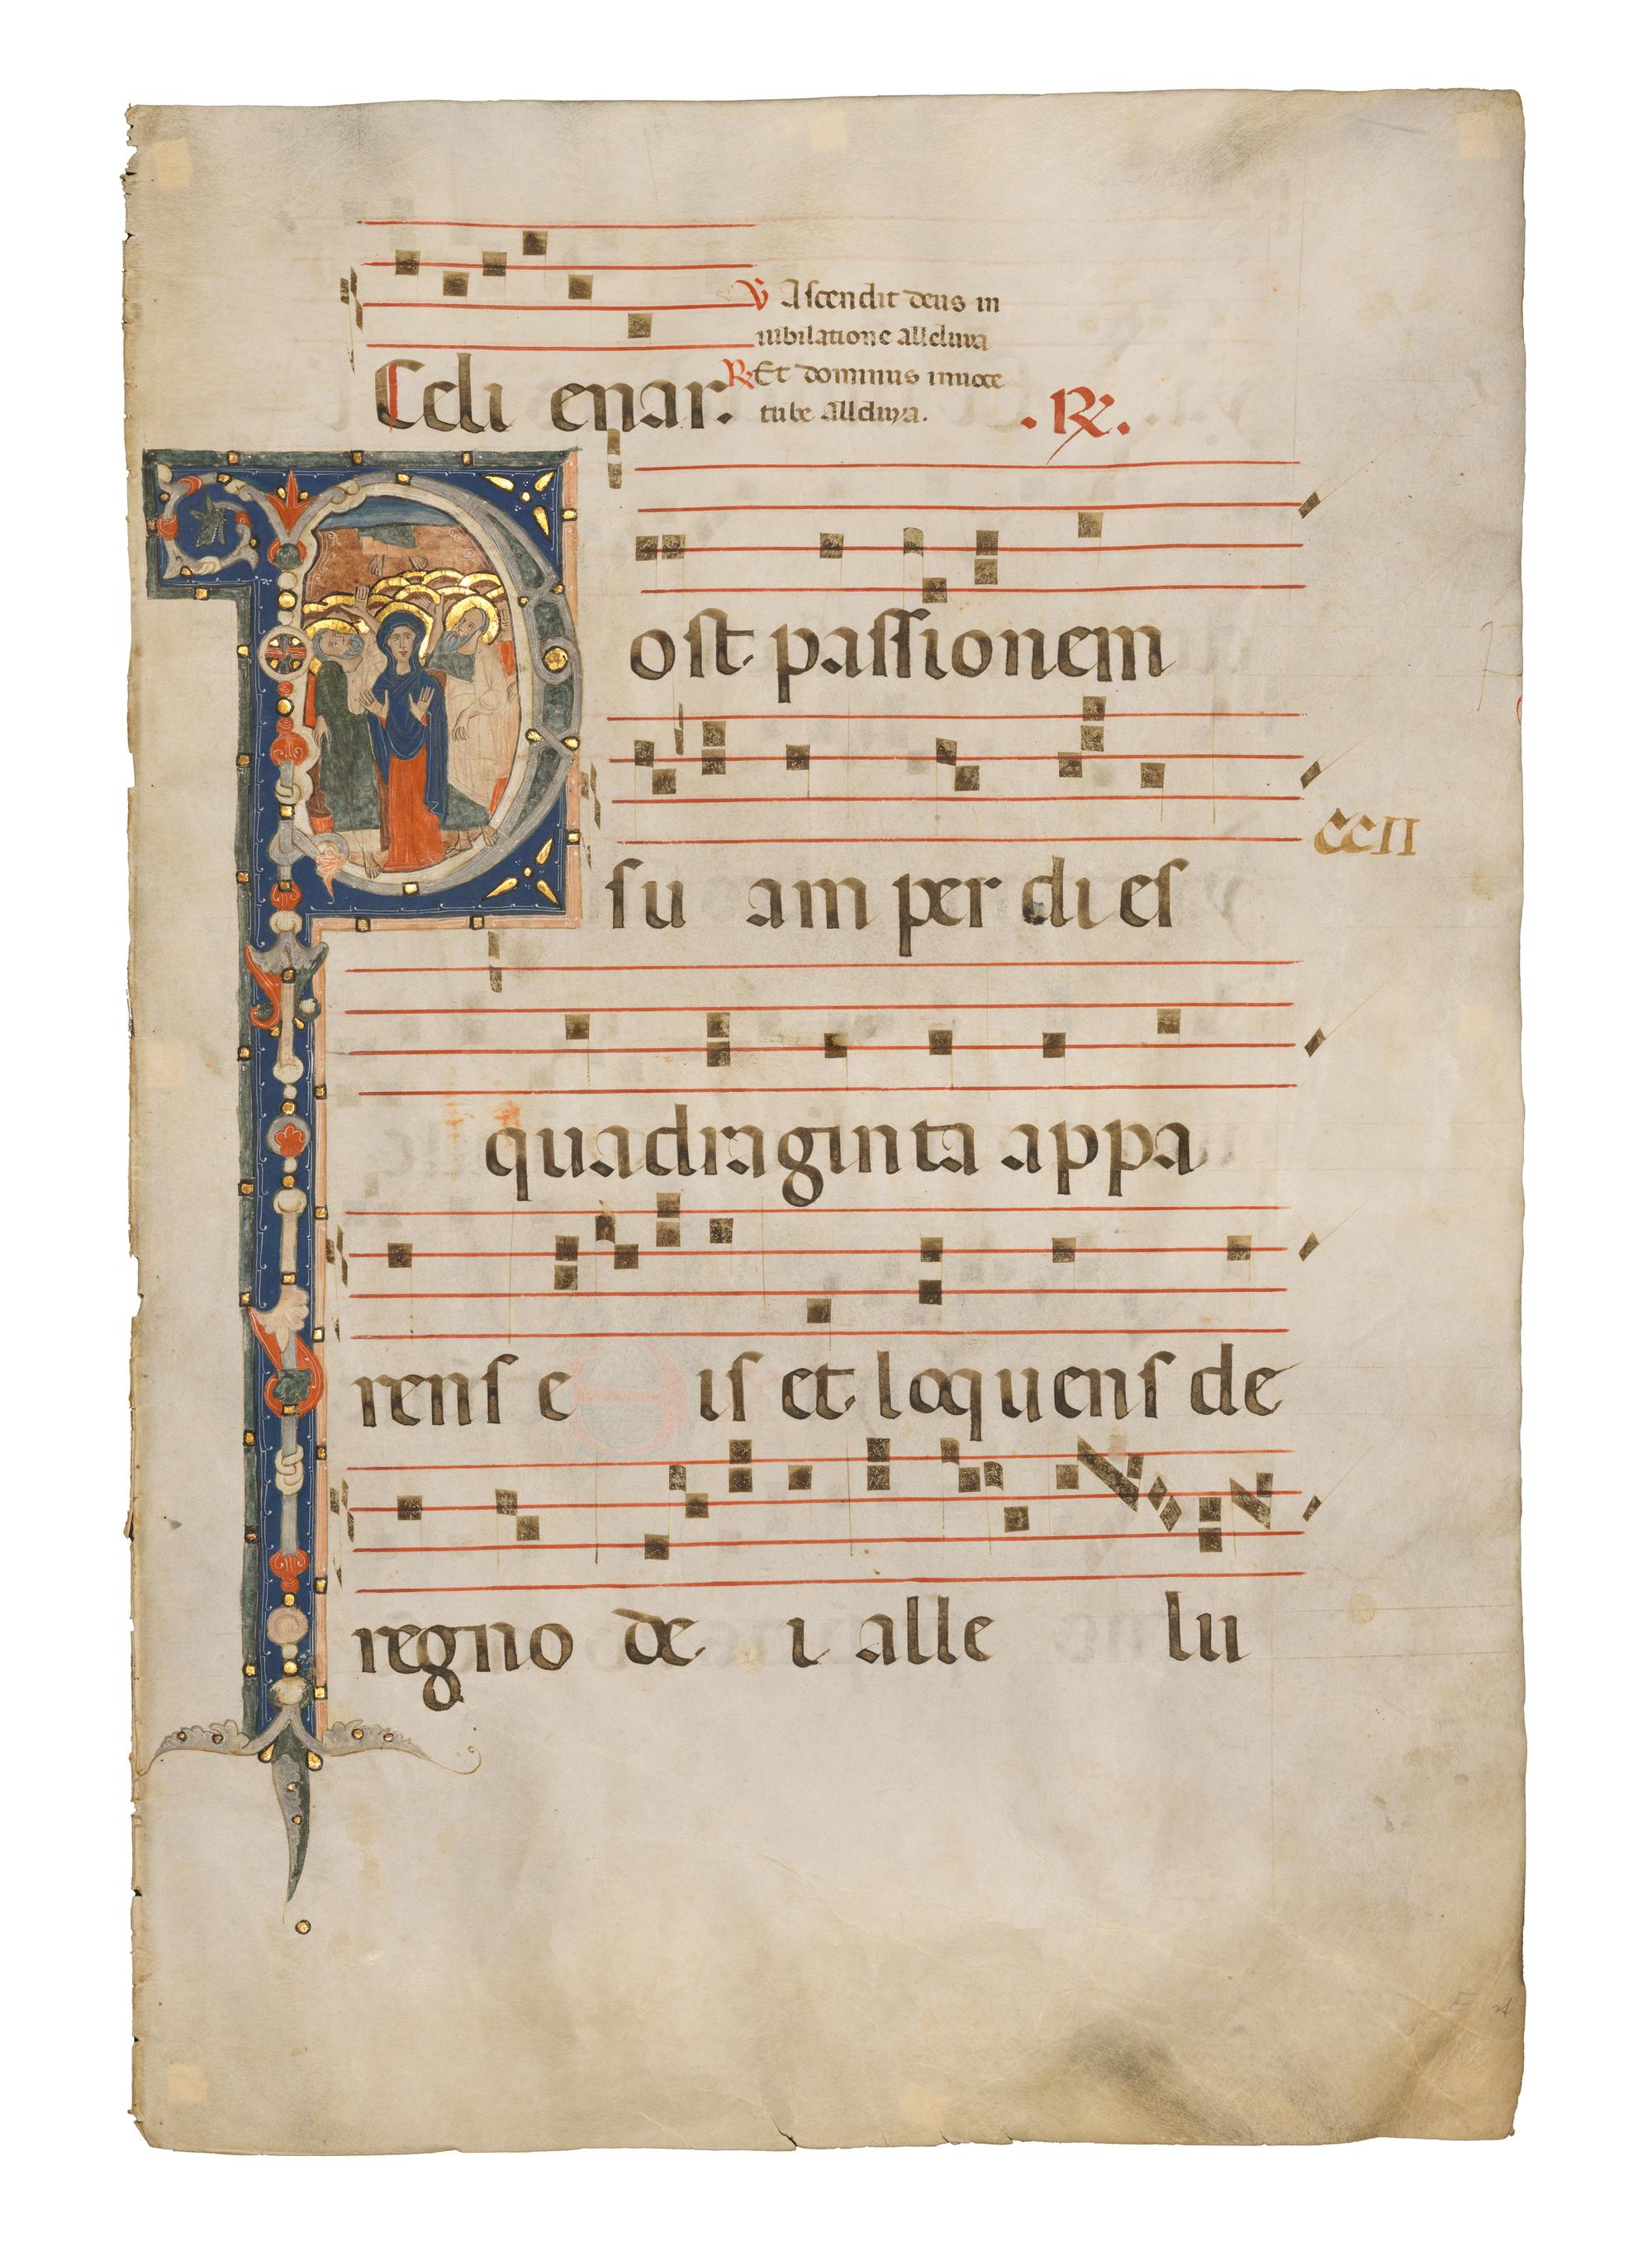 ℣ Ascendit deus in
iubilatione alleluya
Celi enar. ℟ Et dominus in uoce
tube alleluya. .℟.
Post passionem
su am per di es
CCII
quadraginta appa
rens e is et loquens de
regno de i alle lu